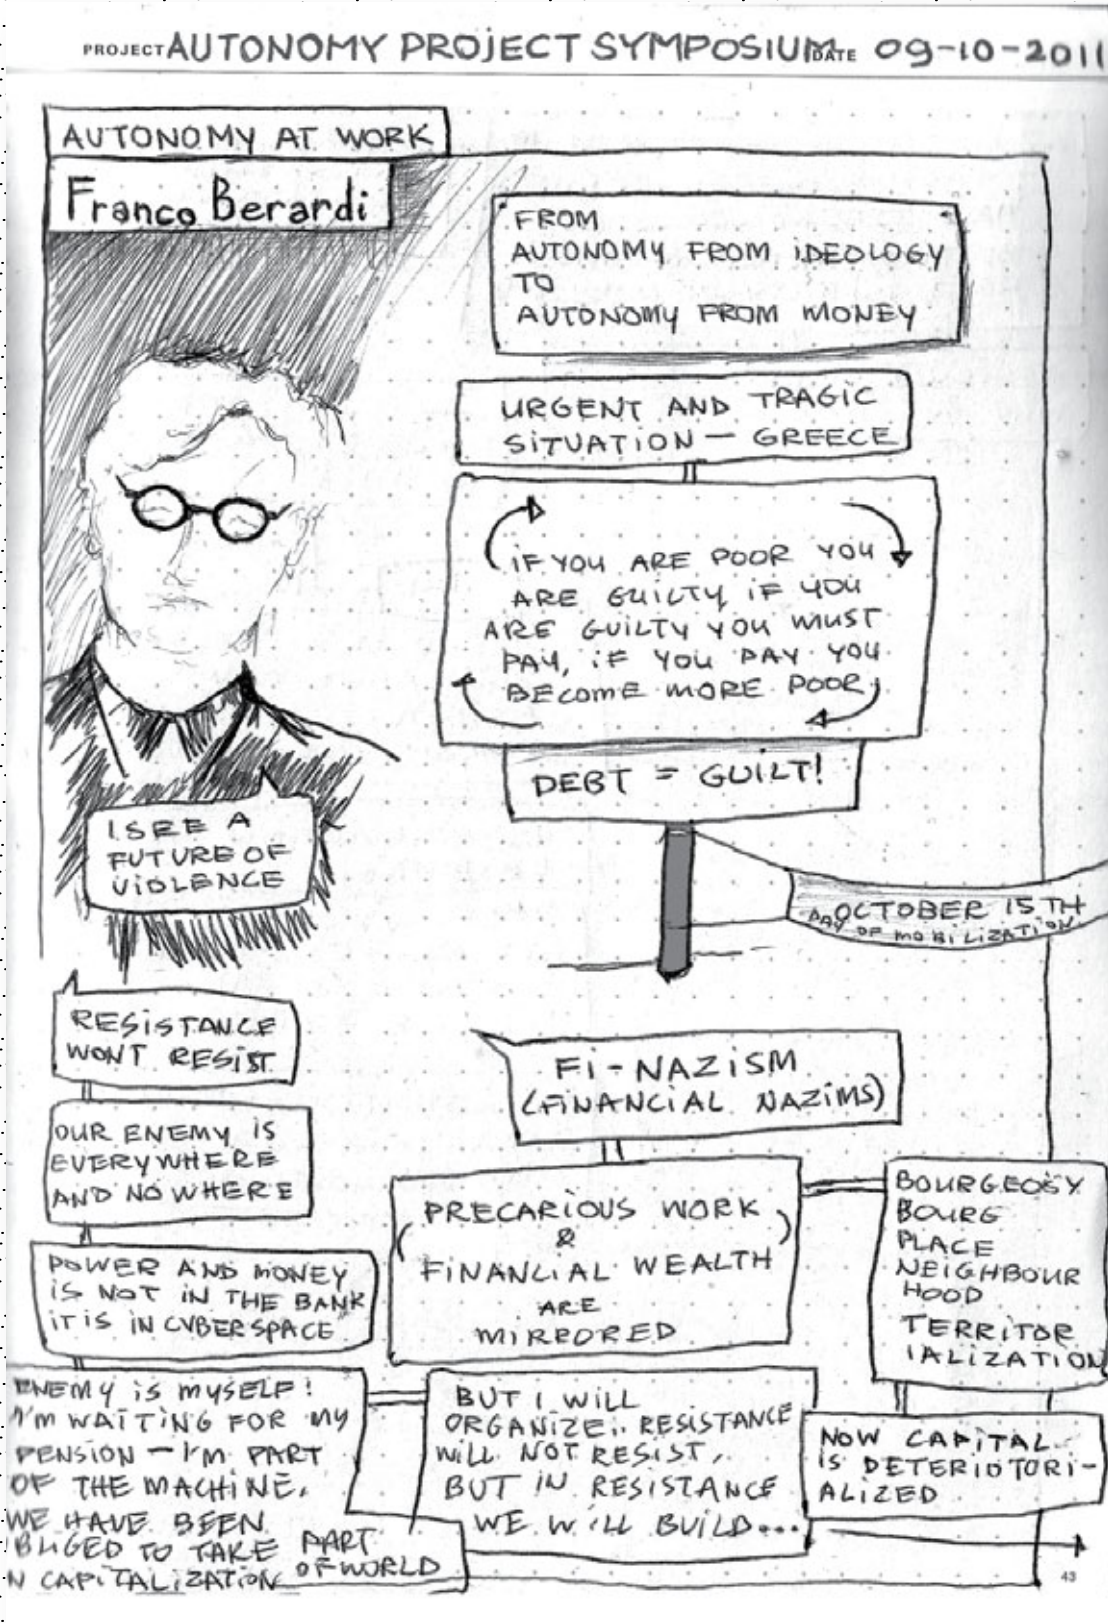 PROJECT AUTONOMY PROJECT SYMPOSIUM DATE 09-10-2011
AUTONOMY AT WORK
Franco Berardi
FROM
AUTONOMY FROM IDEOLOGY
TO
AUTONOMY FROM MONEY
URGENT AND TRAGIC
SITUATION — GREECE
IF YOU ARE POOR YOU
ARE GUILTY IF YOU
ARE GUILTY YOU MUST
PAY, IF YOU PAY YOU
BECOME MORE POOR
DEBT = GUILT!
I SEE A
FUTURE OF
VIOLENCE
OCTOBER 15TH
DAY OF MOBILIZATION
RESISTANCE
WONT RESIST
OUR ENEMY IS
EVERYWHERE
AND NOWHERE
POWER AND MONEY
IS NOT IN THE BANK
IT IS IN CYBERSPACE
FI-NAZISM
(FINANCIAL NAZIMS)
PRECARIOUS WORK
&
FINANCIAL WEALTH
ARE
MIRRORED
BOURGEOSY
BOURG
PLACE
NEIGHBOUR
HOOD
TERRITOR
IALIZATION
ENEMY IS MYSELF!
I'M WAITING FOR MY
PENSION — I'M PART
OF THE MACHINE.
WE HAVE BEEN
BLIGED TO TAKE PART
N CAPITALIZATION OF WORLD
BUT I WILL
ORGANIZE.. RESISTANCE
WILL NOT RESIST,
BUT IN RESISTANCE
WE WILL BUILD...
NOW CAPITAL
IS DETERIOTORI-
ALIZED
43